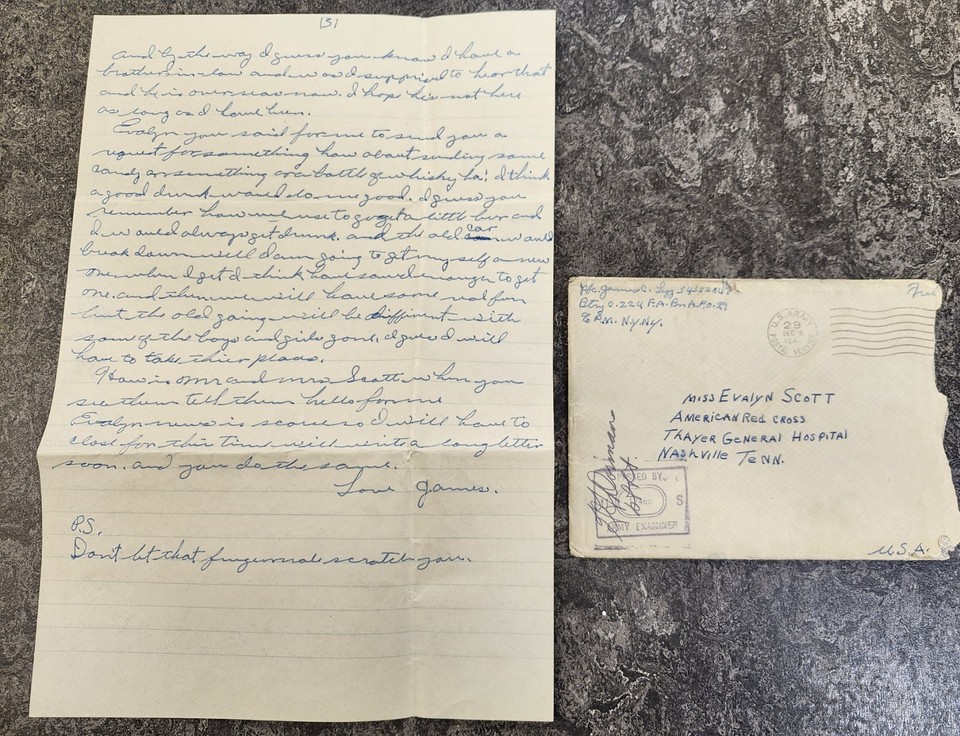 (3)
and by the way I guess you know I have a
brother-in-law and was I supprised to hear that
and he is overseas now. I hope he's not here
as long as I have been.
Evalyn you said for me to send you a
request for something how about sending some
candy or something or a bottle of whiskey ha! I think
a good drunk would do me good. I guess you
remember how we use to go get a little beer and
I would always get drunk. and the old car would
break down well I am going to get my self a new
one when I get I think have saved enough to get
one. and then we will have some real fun
but the old gang will be different with
some of the boys and girls gone. I guess I will
have to take thier place.
How is Mr and Mrs Scott when you
see them tell them hello for me
Evalyn news is scarce so I will have to
close for this time will write a long letter
soon. and you do the same.
Love James.
P.S.
Don't let that fingernail scratch you.
Pfc. James C.
Btry C. 224 F.A. Bn. A.P.O. 29
% P.M. N.Y. N.Y.
Free
U.S. ARMY
29
POSTAL SERVICE
Miss Evalyn Scott
American Red Cross
Thayer General Hospital
Nashville Tenn.
U.S.A.
BY
S
ARMY EXAMINER